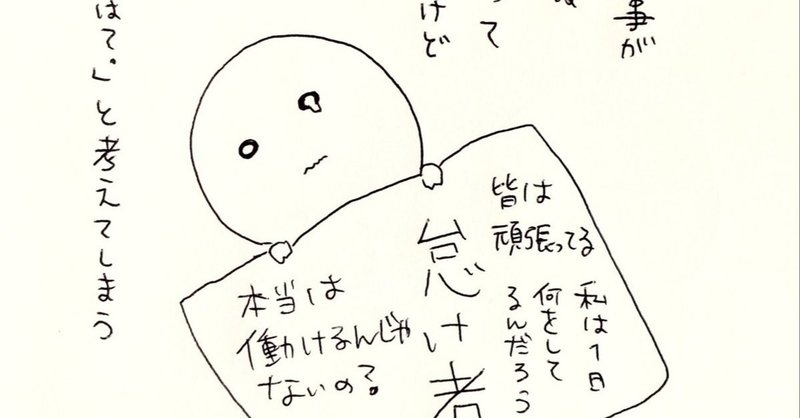 事が
って
けど
皆は
頑張ってる
私は1日
何をして
るんだろう
怠け者
本当は
働けるんじゃ
ないの?
は?」と考えてしまう